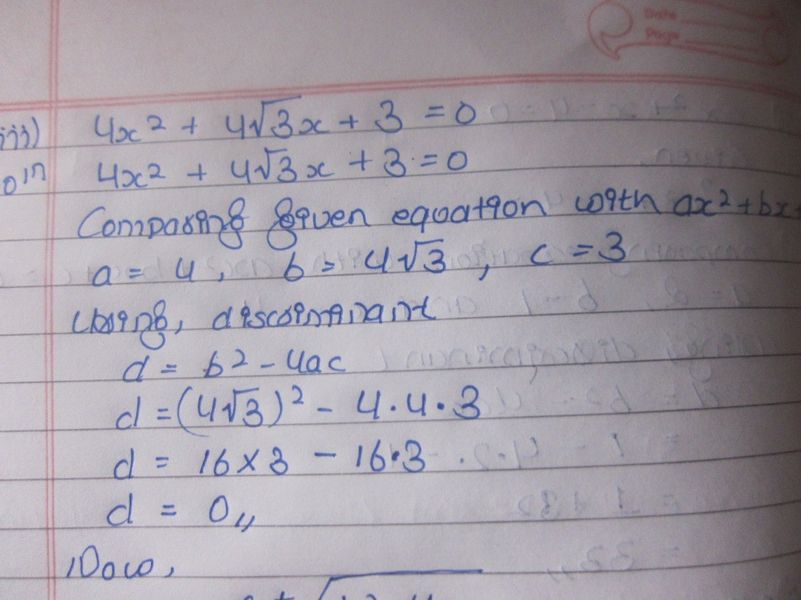 Date
Page
iii) 4x² + 4√3x + 3 = 0
oin 4x² + 4√3x + 3 = 0
Comparing given equation with ax² + bx +
a = 4, b = 4√3, c = 3
Using, discriminant
d = b² - 4ac
d = (4√3)² - 4·4·3
d = 16×3 - 16·3
d = 0,,
Now,